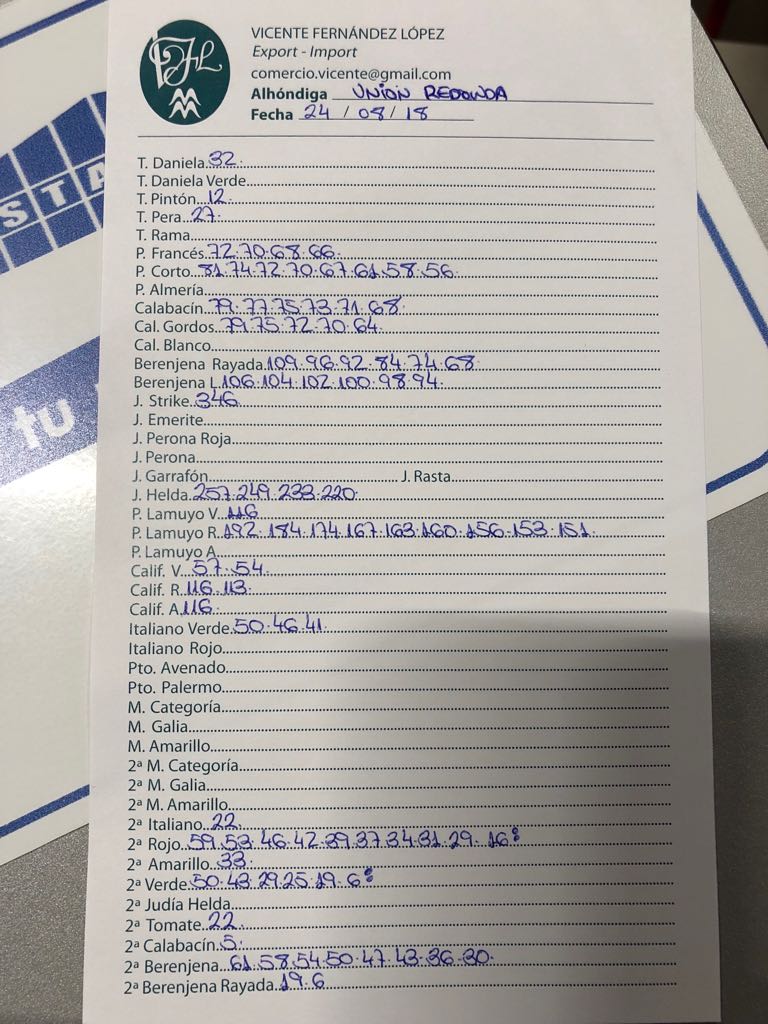 VICENTE FERNÁNDEZ LÓPEZ
Export - Import
comercio.vicente@gmail.com
Alhóndiga UNION REDONDA
Fecha 24 / 08 / 18
T. Daniela 32.
T. Daniela Verde
T. Pintón 12.
T. Pera 27.
T. Rama
P. Francés 72.70.68.66.
P. Corto 81.74.72.70.67.61.58.56.
P. Almería
Calabacín 79.77.75.73.71.68.
Cal. Gordos 79.75.72.70.64.
Cal. Blanco
Berenjena Rayada 109.96.92.84.74.68.
Berenjena L 106.104.102.100.98.94.
J. Strike 346.
J. Emerite
J. Perona Roja
J. Perona
J. Garrafón J. Rasta
J. Helda 257.249.233.220.
P. Lamuyo V. 116
P. Lamuyo R. 192.184.174.167.163.160.156.153.151.
P. Lamuyo A
Calif. V. 57.54.
Calif. R. 116.113.
Calif. A. 116.
Italiano Verde 50.46.41.
Italiano Rojo
Pto. Avenado
Pto. Palermo
M. Categoría
M. Galia
M. Amarillo
2ª M. Categoría
2ª M. Galia
2ª M. Amarillo
2ª Italiano 22.
2ª Rojo 59.53.46.42.39.37.34.31.29.16
2ª Amarillo 33.
2ª Verde 50.43.29.25.19.6
2ª Judía Helda
2ª Tomate 22.
2ª Calabacín 5.
2ª Berenjena 61.58.54.50.47.43.36.30.
2ª Berenjena Rayada 19.6
STA
tu